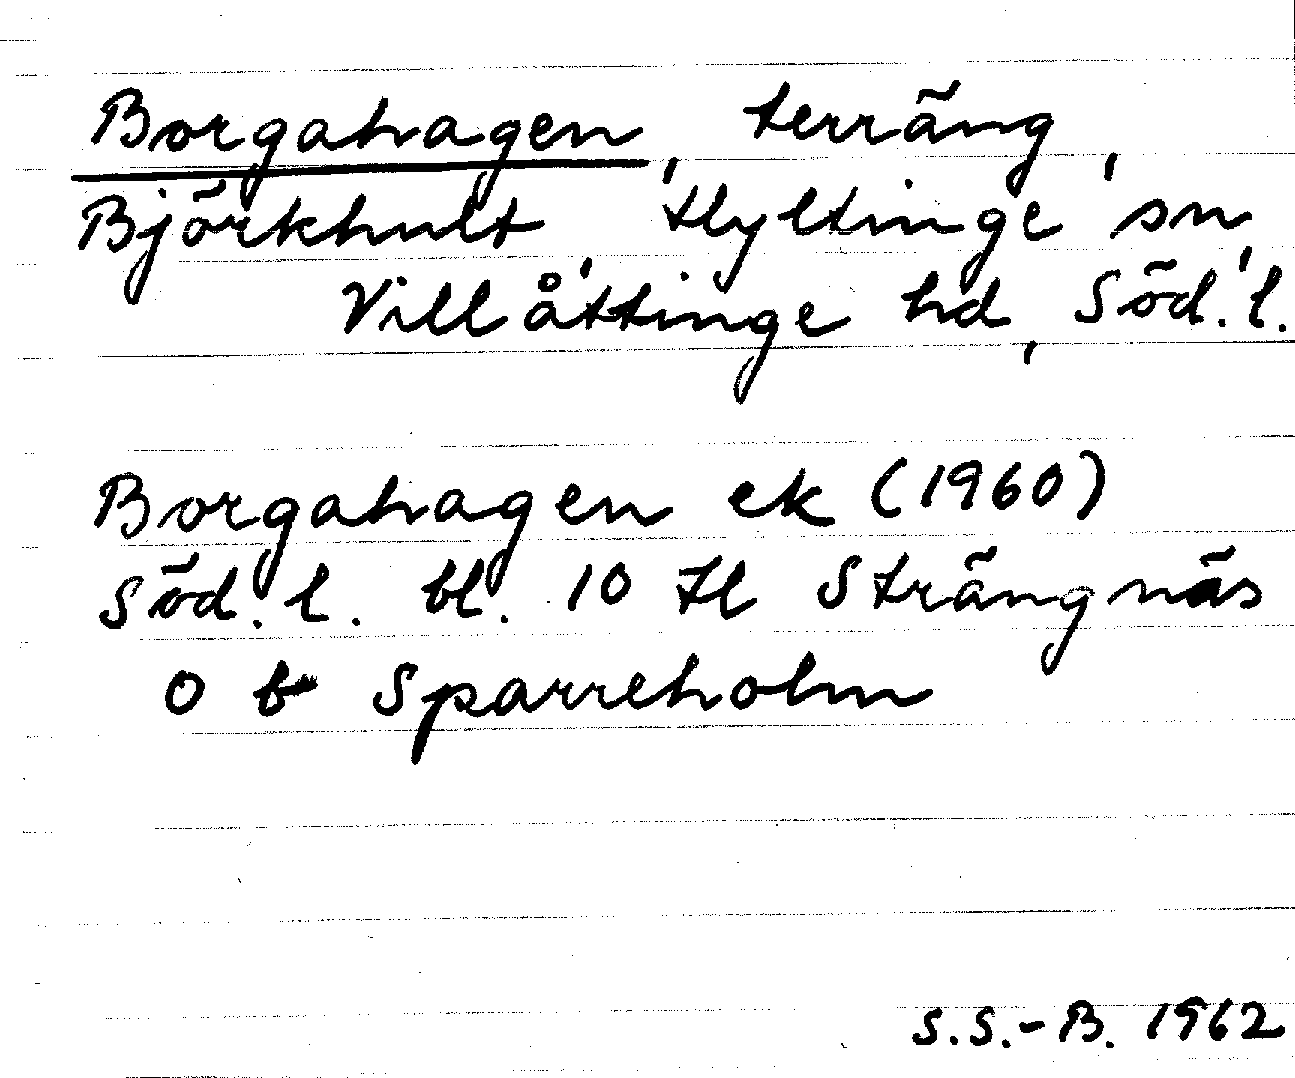 Borgahagen, terräng,
Björkhult, Hyltinge sn,
Villåttinge hd, Söd. l.
Borgahagen ek (1960)
Söd. l. bl. 10 tl Strängnäs
O b Sparreholm
S.S.-B. 1962